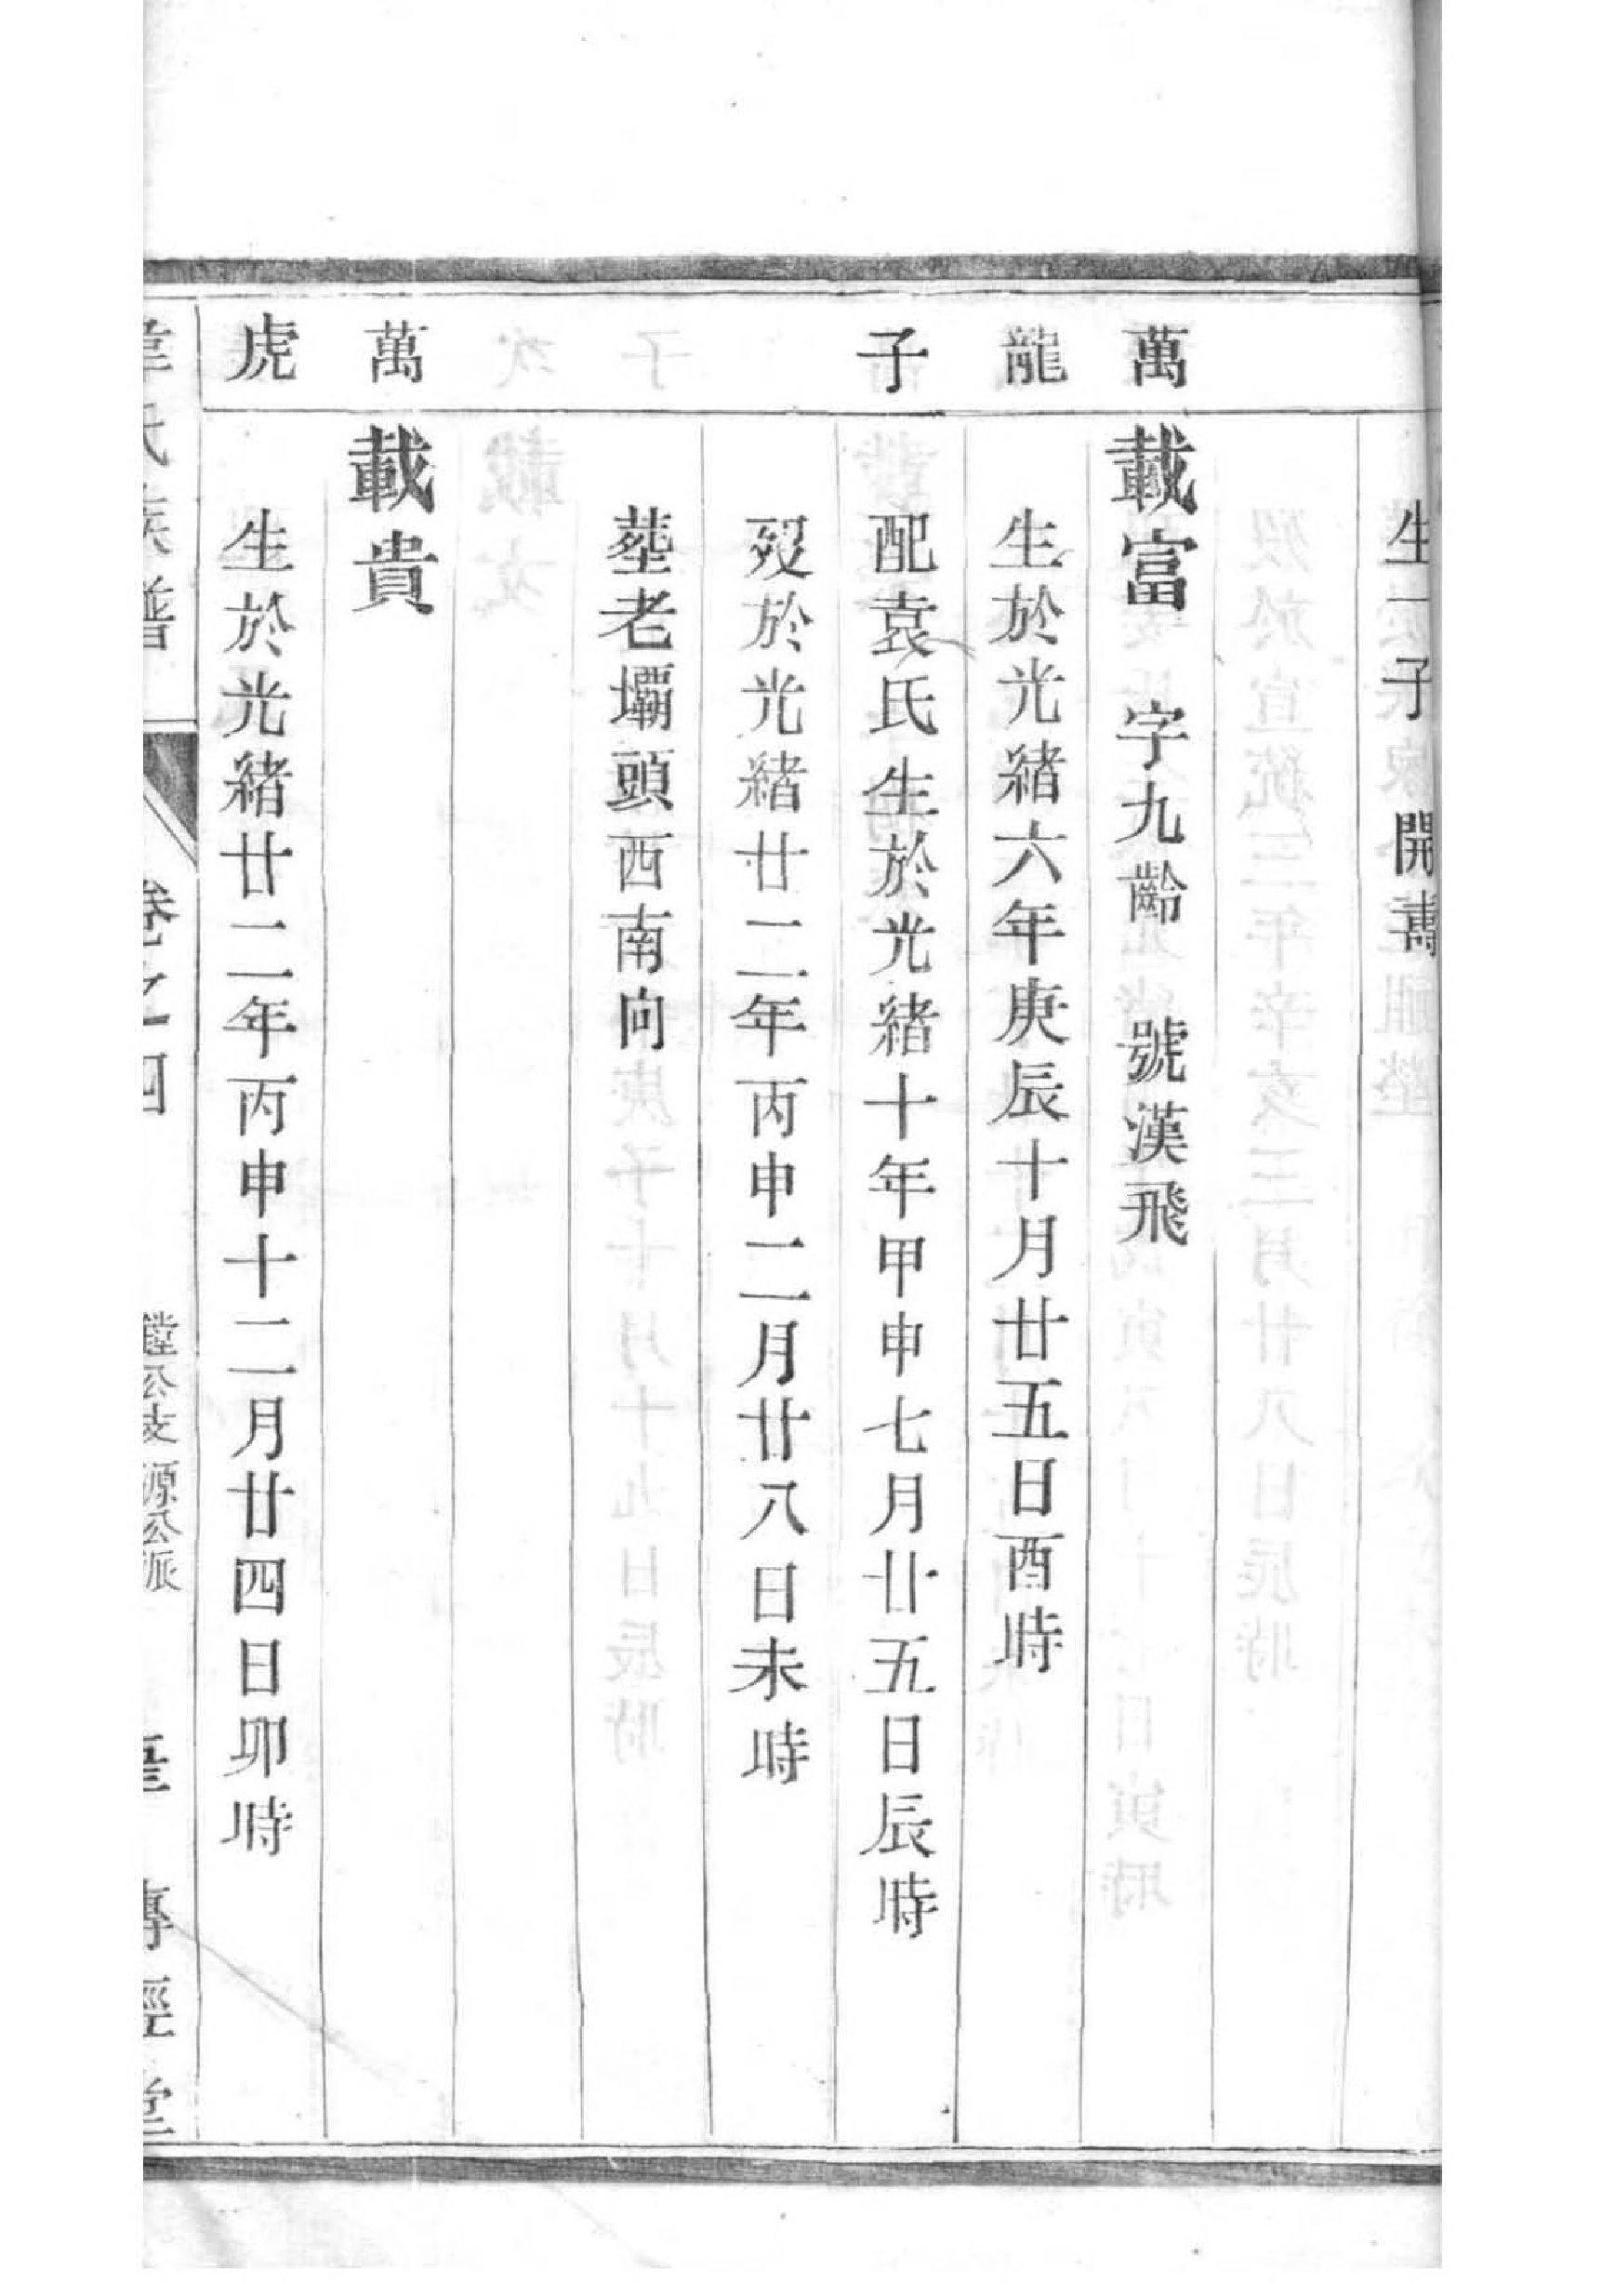 生一子　開
萬　載富　字九齡　號漢飛
龍　生於光緒六年庚辰十月廿五日酉時
子　配袁氏生於光緒十年甲申七月廿五日辰時
歿於光緒廿二年丙申二月廿八日未時
塟老壩頭西南向
萬　載貴
虎　生於光緒廿二年丙申十二月廿四日卯時
氏族譜　卷之四　公支源公派　傳經堂